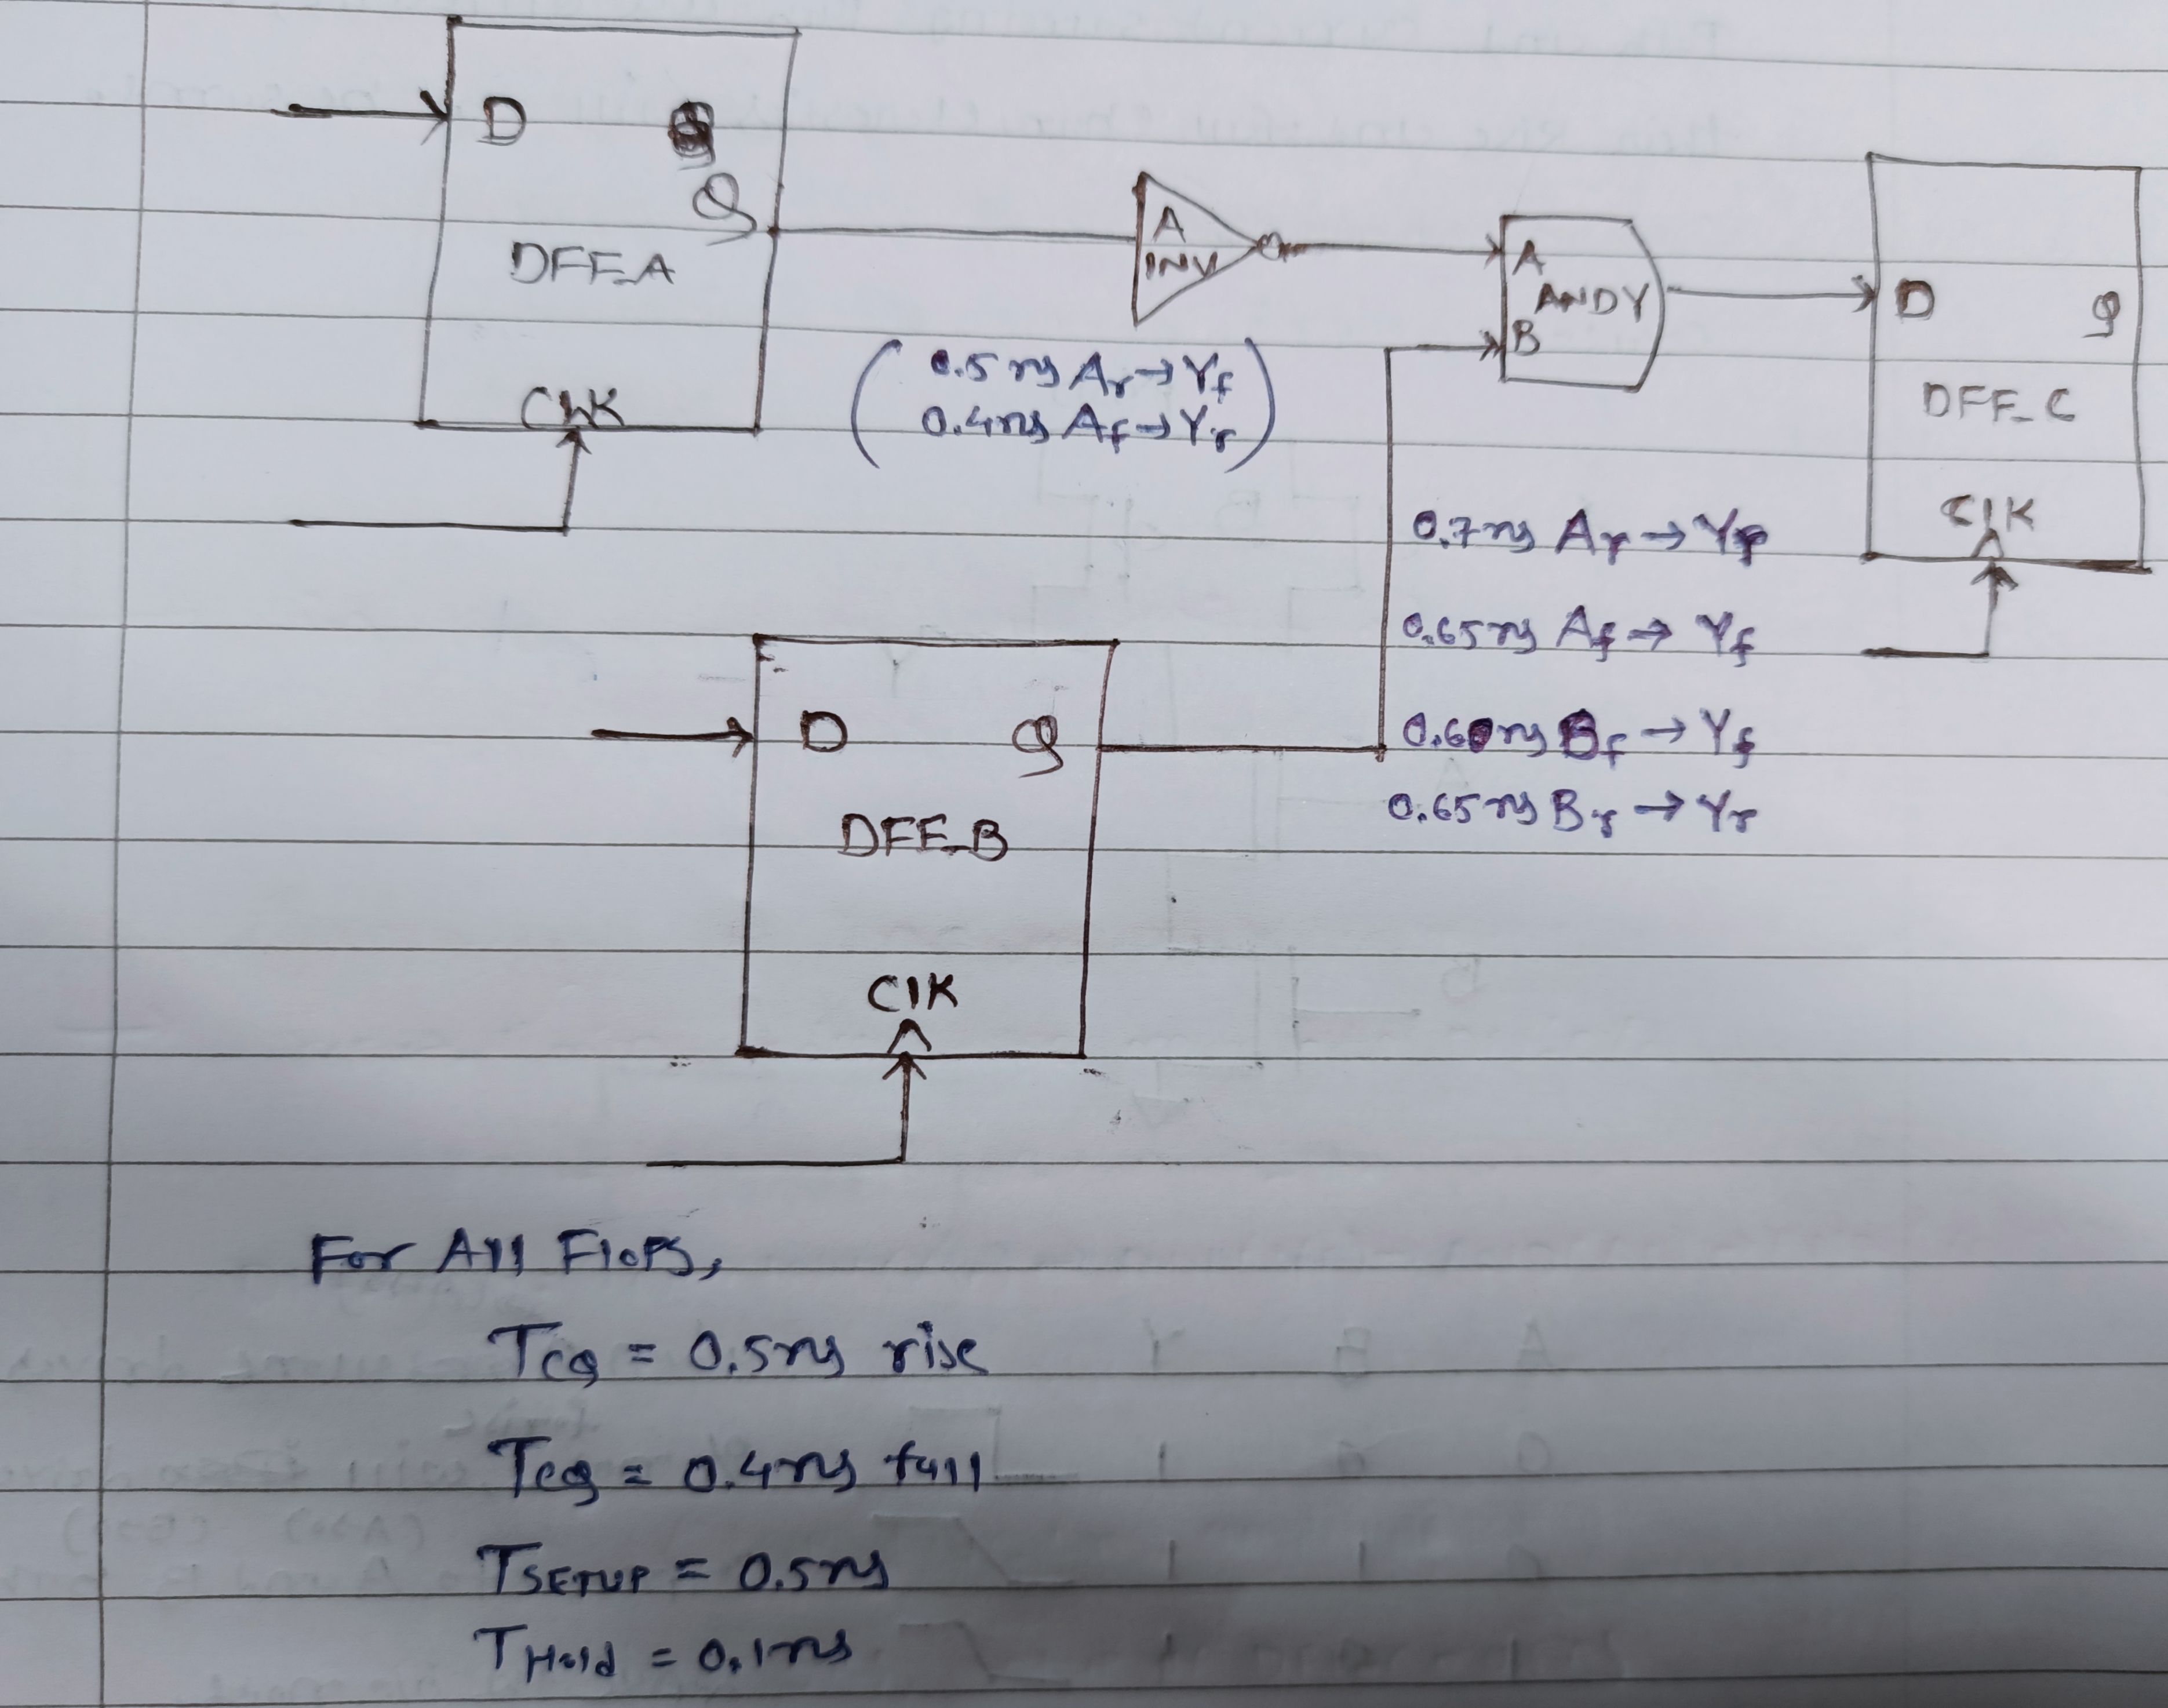 D
Q
DFF_A
CLK
A
INV
(0.5ns Ar→Yf
0.4ns Af→Yr)
A
ANDY
B
D Q
DFF_C
ClK
0.7ns Ar→Yr
0.65ns Af→Yf
0.60ns Bf→Yf
0.65ns Br→Yr
D Q
DFF_B
ClK
For All Flops,
TCQ = 0.5ns rise
TCQ = 0.4ns fall
TSETUP = 0.5ns
THold = 0.1ns